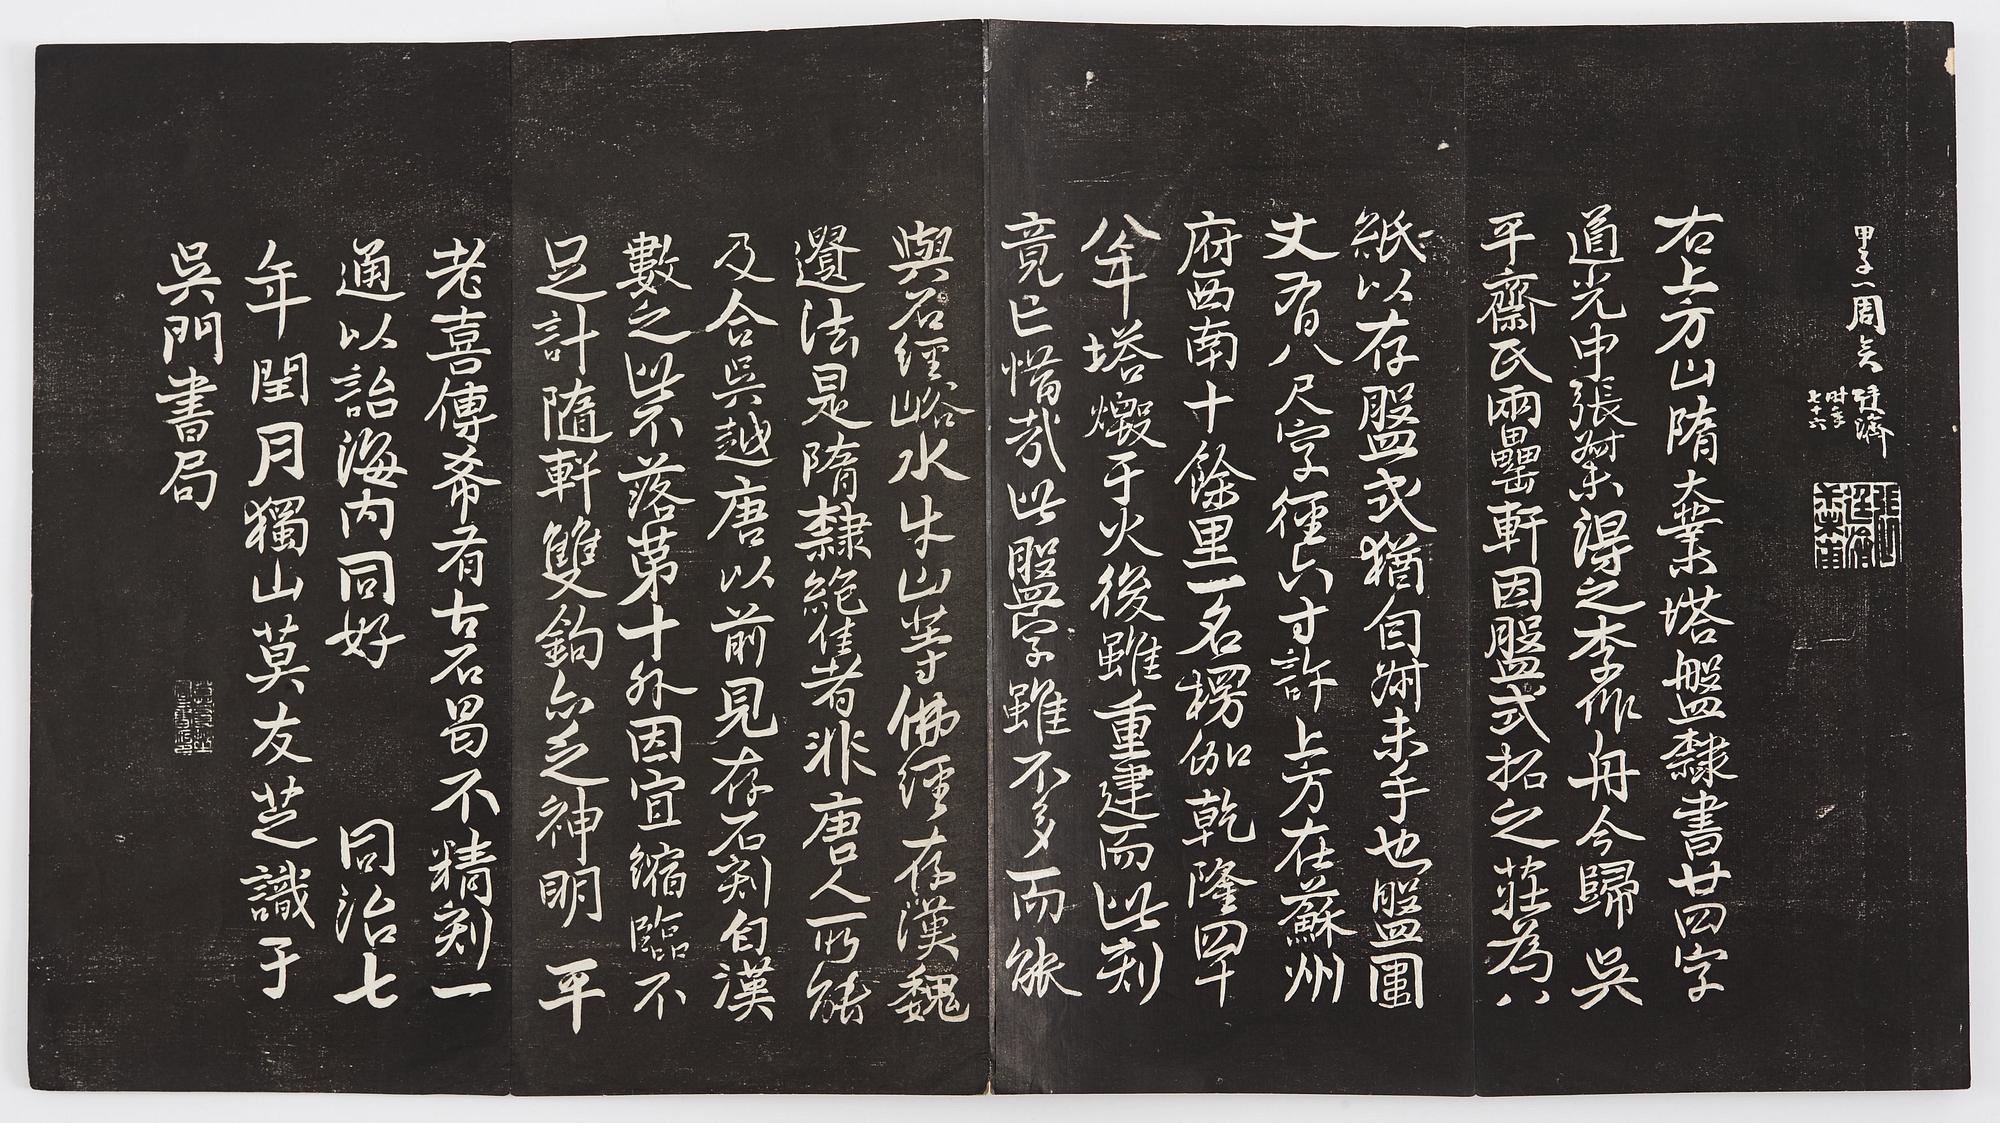 甲子一周矣 廷濟
時年
七十六
右上方山隋大業塔盤隸書廿四字
道光中張尗未得之李作舟今歸吳
平齋氏兩罍軒因盤式拓之莊為八
紙以存盤式猶自尗未手也盤圍
丈有八尺字徑六寸許上方在蘇州
府西南十餘里一名楞伽乾隆四十
八年塔燬于火後雖重建而此刻
竟亡惜哉此盤字雖不多而能
與石經峪水牛山等佛經存漢魏
遺法是隋隸絶佳者非唐人所能
及合吳越唐以前見存石刻自漢
數之此不落第十外因宜縮臨不
足計隨軒雙鉤亦乏神明 平
老喜傳希有古石曷不精刻一
通以詒海内同好 同治七
年閏月獨山莫友芝識于
吳門書局